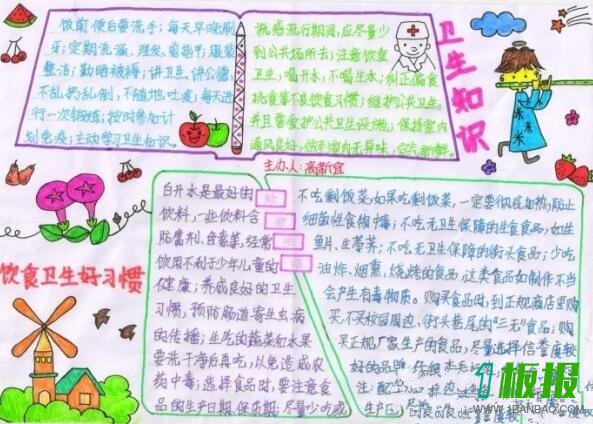 饭前便后要洗手;每天早晚刷
牙;定期洗澡、理发、剪指甲;服装
整洁;勤晒被褥;讲卫生、讲公德,
不乱扔乱倒,不随地吐痰;每天进
行一次锻炼;按时参加计
划免疫;主动学习卫生知识。
流感流行期间,应尽量少
到公共场所去;注意饮食
卫生,喝开水,不喝生水;纠正偏食
挑食等不良饮食习惯;维护公共卫生,
并且要爱护公共卫生设施;保持室内
通风良好,做到室内无异味,空气新鲜。
卫生知识
主办人:高新宜
饮食卫生好习惯
白开水是最好的
饮料,一些饮料含
防腐剂、色素菜,经常
饮用不利于少年儿童的
健康;养成良好的卫生
习惯,预防肠道寄生虫病
的传播;生吃的蔬菜和水果
要洗干净后再吃,以免造成农
药中毒;选择食品时,要注意食
品的生产日期、保质期;尽量少吃或
不吃剩饭菜,如果吃剩饭菜,一定要彻底加热,防止
细菌性食物中毒;不吃无卫生保障的生食食品,如生
鱼片、生荸荠;不吃无卫生保障的街头食品;少吃
油炸、烟熏、烧烤的食品,这类食品如制作不当
会产生有毒物质。购买食品时,到正规商店里购
买,不买校园周边、街头巷尾的“三无”食品;购
买正规厂家生产的食品,尽量选择信誉度较
好的品牌
注:配
生产厂
1板报
WWW.1BANBAO.COM